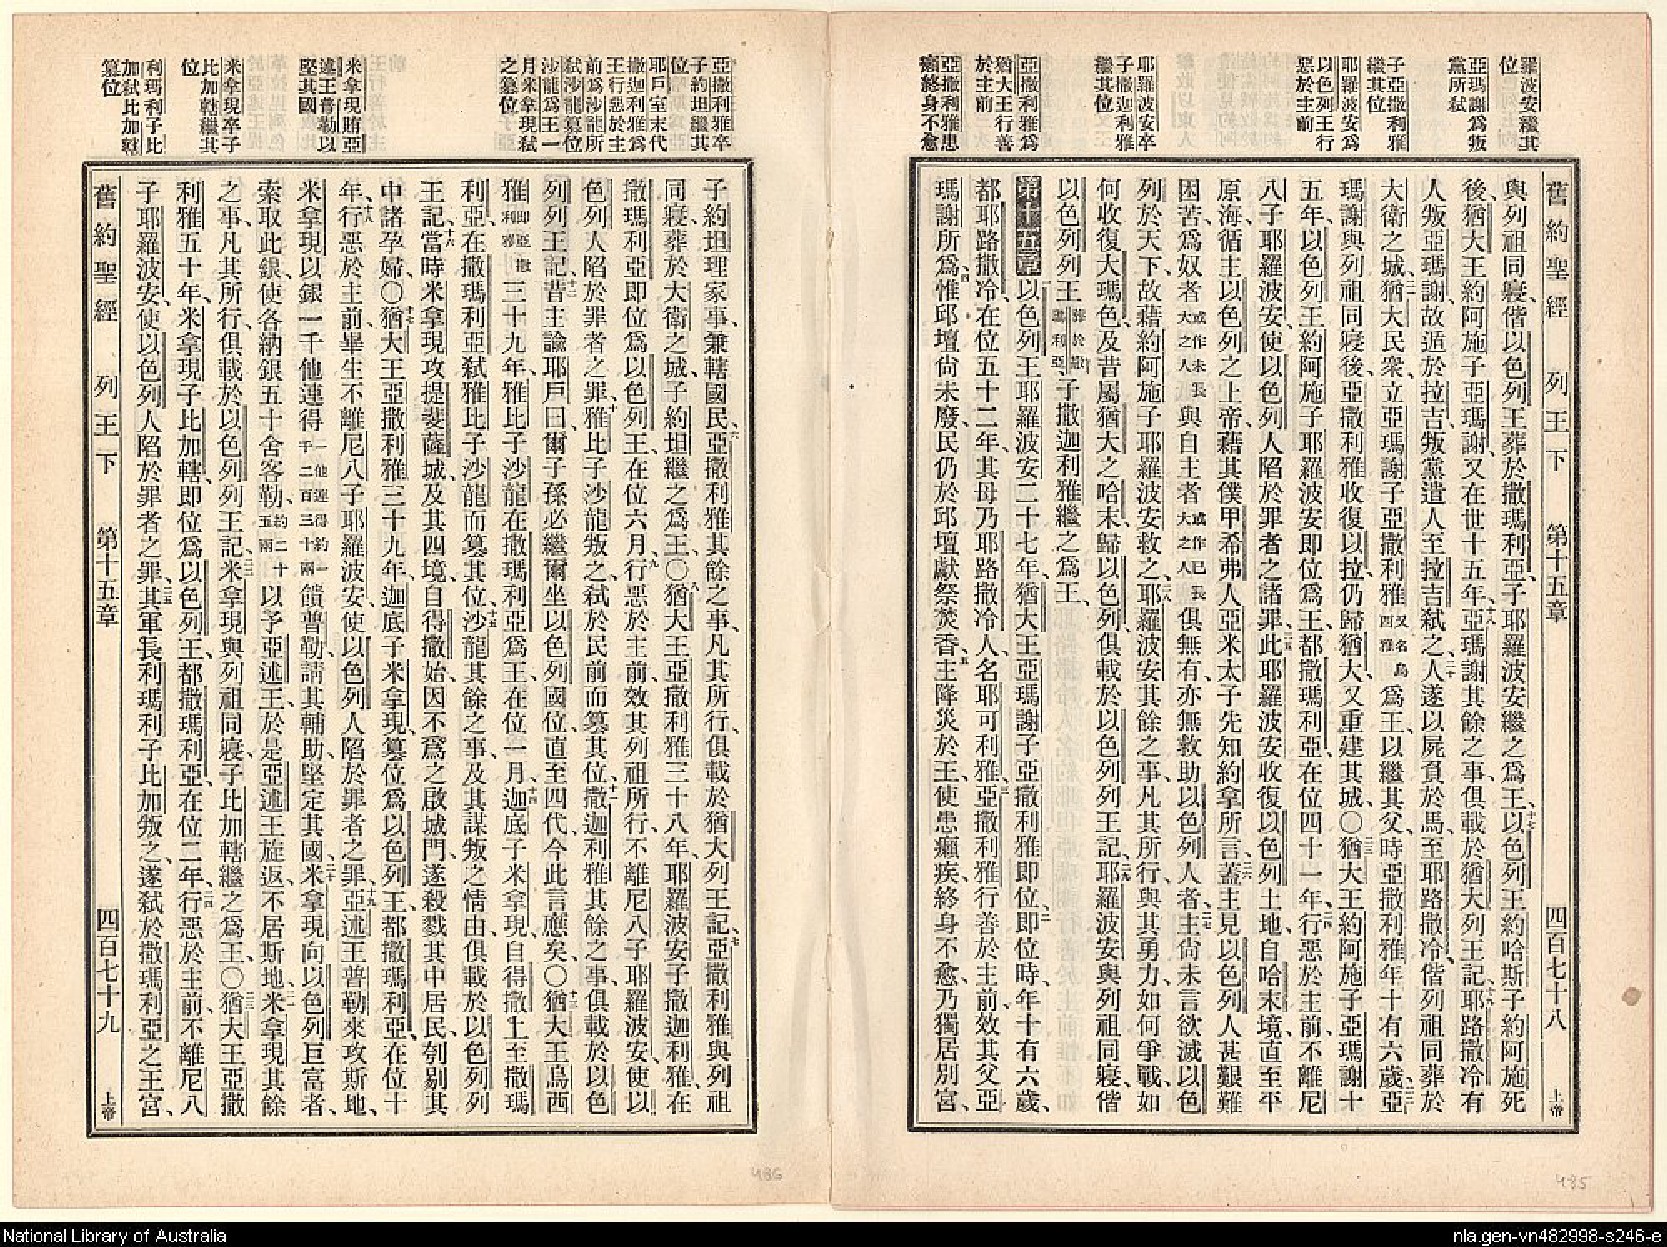 羅波安繼其
位
亞瑪謝爲叛
黨所弒
子亞撒利雅
繼其位
耶羅波安爲
以色列王行
惡於主前
耶羅波安卒
子撒迦利雅
繼其位
亞撒利雅爲
猶大王行善
於主前
亞撒利雅患
癩終身不愈
舊約聖經 列王下 第十五章 四百七十八 上帝
與列祖同寢、偕以色列王葬於撒瑪利亞、子耶羅波安繼之爲王、十七以色列王約哈斯子約阿施死
後、猶大王約阿施子亞瑪謝、又在世十五年、十八亞瑪謝其餘之事、俱載於猶大列王記、十九耶路撒冷有
人叛亞瑪謝、故遁於拉吉、叛黨遣人至拉吉弒之、二十人遂以屍負於馬、至耶路撒冷、偕列祖同葬於
大衛之城、二一猶大民衆立亞瑪謝子亞撒利雅又名烏西雅爲王、以繼其父、時亞撒利雅年十有六歲、二二亞
瑪謝與列祖同寢後、亞撒利雅收復以拉、仍歸猶大、又重建其城、〇二三猶大王約阿施子亞瑪謝十
五年、以色列王約阿施子耶羅波安卽位爲王、都撒瑪利亞、在位四十一年、二四行惡於主前、不離尼
八子耶羅波安、使以色列人陷於罪者之諸罪、二五此耶羅波安收復以色列土地、自哈末境、直至平
原海、循主以色列之上帝、藉其僕甲希弗人亞米太子先知約拿所言、二六蓋主見以色列人甚艱難
困苦、爲奴者或作未長大之人與自主者或作已長大之人俱無有、亦無救助以色列人者、二七主尚未言欲滅以色
列於天下、故藉約阿施子耶羅波安救之、二八耶羅波安其餘之事、凡其所行、與其勇力、如何爭戰、如
何收復大瑪色、及昔屬猶大之哈末歸以色列、俱載於以色列列王記、二九耶羅波安與列祖同寢、偕
以色列列王葬於撒瑪利亞、子撒迦利雅繼之爲王、
第十五章以色列王耶羅波安二十七年、猶大王亞瑪謝子亞撒利雅卽位、二卽位時、年十有六歲、
都耶路撒冷、在位五十二年、其母乃耶路撒冷人、名耶可利雅、三亞撒利雅行善於主前、效其父亞
瑪謝所爲、四惟邱壇尚未廢、民仍於邱壇獻祭焚香、五主降災於王、使患癩疾終身不愈、乃獨居別宮、
亞撒利雅卒
子約坦繼其
位
耶戶室末代
撒迦利雅爲
王行惡於主
前爲沙龍所
弒沙龍篡位
沙龍爲王一
月米拿現弒
之篡位
米拿現賄亞
述王普勒以
堅其國
米拿現卒子
比加轄繼其
位
利瑪利子比
加弒比加轄
篡位
子約坦理家事、兼轄國民、六亞撒利雅其餘之事、凡其所行、俱載於猶大列王記、七亞撒利雅與列祖
同寢、葬於大衛之城、子約坦繼之爲王、〇八猶大王亞撒利雅三十八年、耶羅波安子撒迦利雅、在
撒瑪利亞卽位爲以色列王、在位六月、九行惡於主前、效其列祖所行、不離尼八子耶羅波安、使以
色列人陷於罪者之罪、十雅比子沙龍叛之、弒於民前而篡其位、十一撒迦利雅其餘之事、俱載於以色
列列王記、十二昔主諭耶戶曰、爾子孫必繼爾坐以色列國位、直至四代、今此言應矣、〇十三猶大王烏西
雅卽亞撒利雅三十九年、雅比子沙龍在撒瑪利亞爲王、在位一月、十四迦底子米拿現、自得撒上至撒瑪
利亞、在撒瑪利亞弒雅比子沙龍而篡其位、十五沙龍其餘之事、及其謀叛之情由、俱載於以色列列
王記、十六當時米拿現攻提斐薩城、及其四境、自得撒始、因不爲之啟城門、遂殺戮其中居民、刳剔其
中諸孕婦、〇十七猶大王亞撒利雅三十九年、迦底子米拿現、篡位爲以色列王、都撒瑪利亞、在位十
年、十八行惡於主前、畢生不離尼八子耶羅波安、使以色列人陷於罪者之罪、十九亞述王普勒來攻斯地、
米拿現以銀一千他連得一他連得約一千二百三十兩饋普勒、請其輔助、堅定其國、二十米拿現向以色列巨富者、
索取此銀、使各納銀五十舍客勒約二十五兩以予亞述王、於是亞述王旋返、不居斯地、二一米拿現其餘
之事、凡其所行、俱載於以色列列王記、二二米拿現與列祖同寢、子比加轄繼之爲王、〇二三猶大王亞撒
利雅五十年、米拿現子比加轄卽位爲以色列王、都撒瑪利亞、在位二年、二四行惡於主前、不離尼八
子耶羅波安、使以色列人陷於罪者之罪、二五其軍長利瑪利子比加叛之、遂弒於撒瑪利亞之王宮、
舊約聖經 列王下 第十五章 四百七十九 上帝
486
485
National Library of Australia
nla.gen-vn482998-s246-e